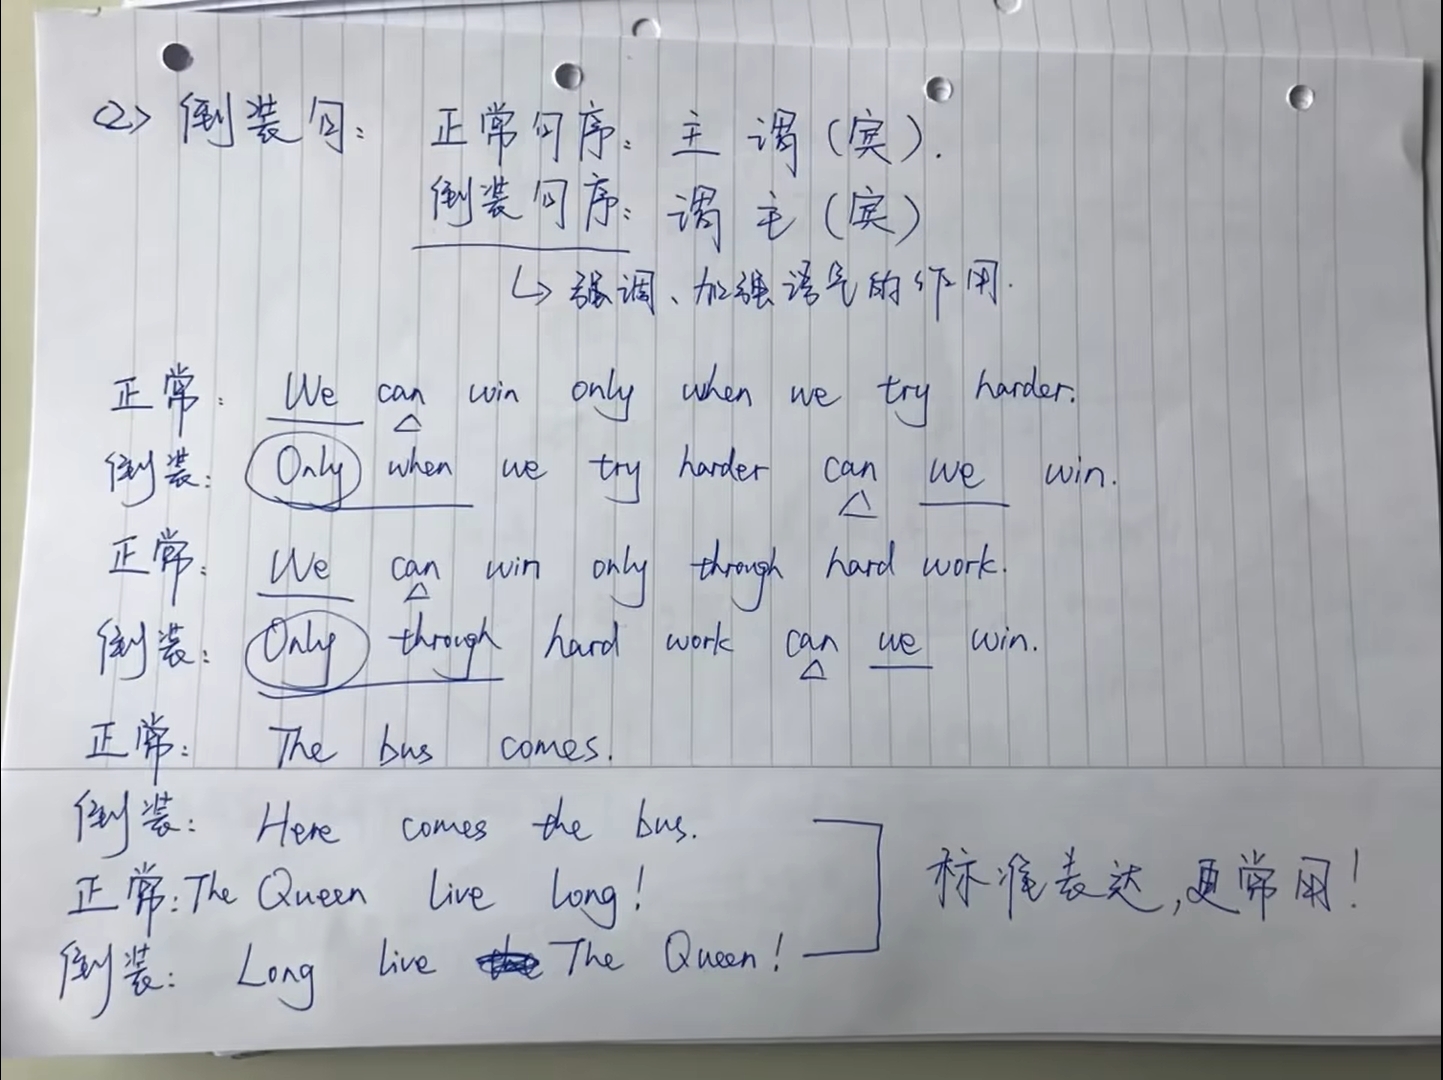 <2> 倒装句： 正常句序：主 谓（宾）.
倒装句序：谓 主（宾）
↳ 强调、加强语气的作用.
正常： We can win only when we try harder.
倒装： Only when we try harder can we win.
正常： We can win only through hard work.
倒装： Only through hard work can we win.
正常： The bus comes.
倒装： Here comes the bus.
正常：The Queen live long!
倒装： Long live The Queen!
标准表达，更常用！